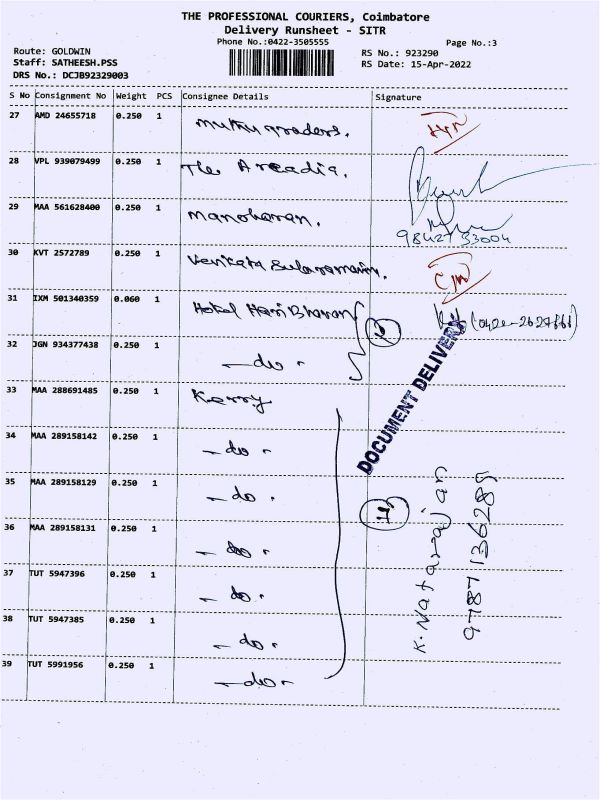 THE PROFESSIONAL COURIERS, Coimbatore
Delivery Runsheet - SITR
Phone No.:0422-3505555
Page No.:3
Route: GOLDWIN
RS No.: 923290
Staff: SATHEESH.PSS
RS Date: 15-Apr-2022
DRS No.: DCJB92329003
S No Consignment No Weight PCS Consignee Details Signature
27 AMD 24655718 0.250 1 muthu traders.
28 VPL 939079499 0.250 1 The Arcadia.
29 MAA 561628400 0.250 1 manoharan.
9842733004
30 KVT 2572789 0.250 1
31 IXM 501340359 0.060 1 Hotel Hari Bhavan
32 JGN 934377438 0.250 1 - do -
DOCUMENT DELIVERY
33 MAA 288691485 0.250 1 Kerry
34 MAA 289158142 0.250 1 - do -
35 MAA 289158129 0.250 1 - do -
36 MAA 289158131 0.250 1 - do -
37 TUT 5947396 0.250 1 - do -
38 TUT 5947385 0.250 1 - do -
39 TUT 5991956 0.250 1 - do -
K. Natarajan
9787136289